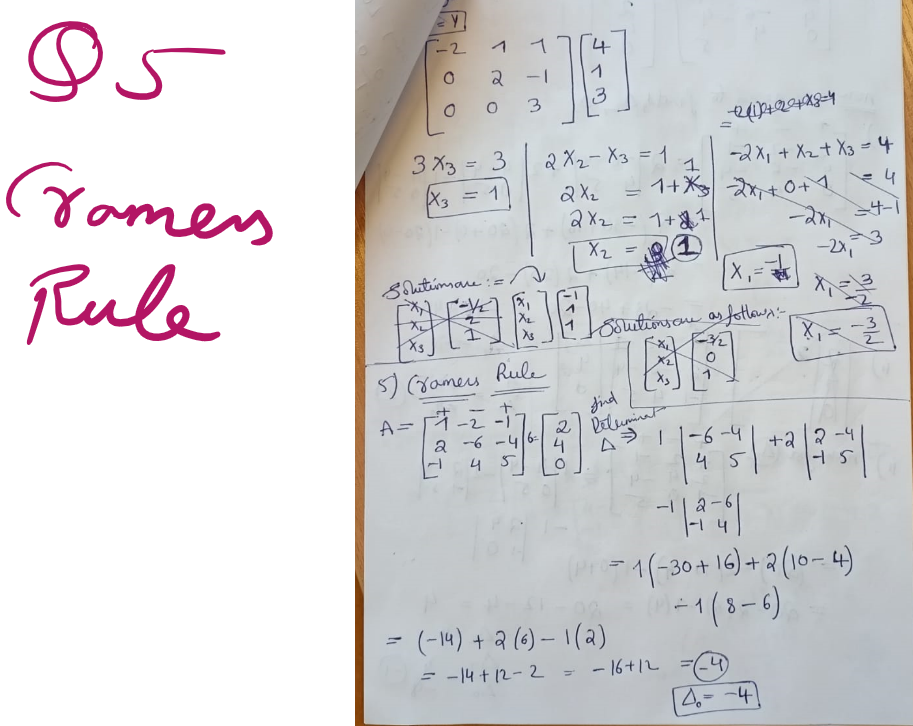 Q5
Cramers
Rule
= Y
[-2 1 1] [4]
[0 2 -1] [1]
[0 0 3] [3]
3x₃ = 3
x₃ = 1
2x₂ - x₃ = 1
2x₂ = 1+x₃ 1
2x₂ = 1+1
x₂ = 1
=
-2x₁ + x₂ + x₃ = 4
-2x₁ + 0 + 1 = 4
-2x₁ = 4-1
-2x₁ = 3
x₁ = 3/-2
x₁ = -3/2
x₁ = -1
Solutions are :=
[x₁] [-1/2] [x₁] [-1]
[x₂] [2] [x₂] [1]
[x₃] [1] [x₃] [1]
Solutions are as follows:-
[x₁] [-3/2]
[x₂] [0]
[x₃] [1]
5) Cramers Rule
+ - +
A = [1 -2 -1] b= [2]
[2 -6 -4] [4]
[-1 4 5] [0]
find
Determinant
Δ ⇒ 1 |-6 -4| +2 |2 -4|
|4 5| |-1 5|
-1 |2 -6|
|-1 4|
= 1(-30+16)+2(10-4)
-1(8-6)
= (-14) + 2(6) - 1(2)
= -14+12-2 = -16+12 = -4
Δ₀ = -4